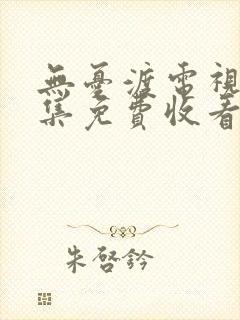 無憂渡電視
集免費收看
朱啓鈐